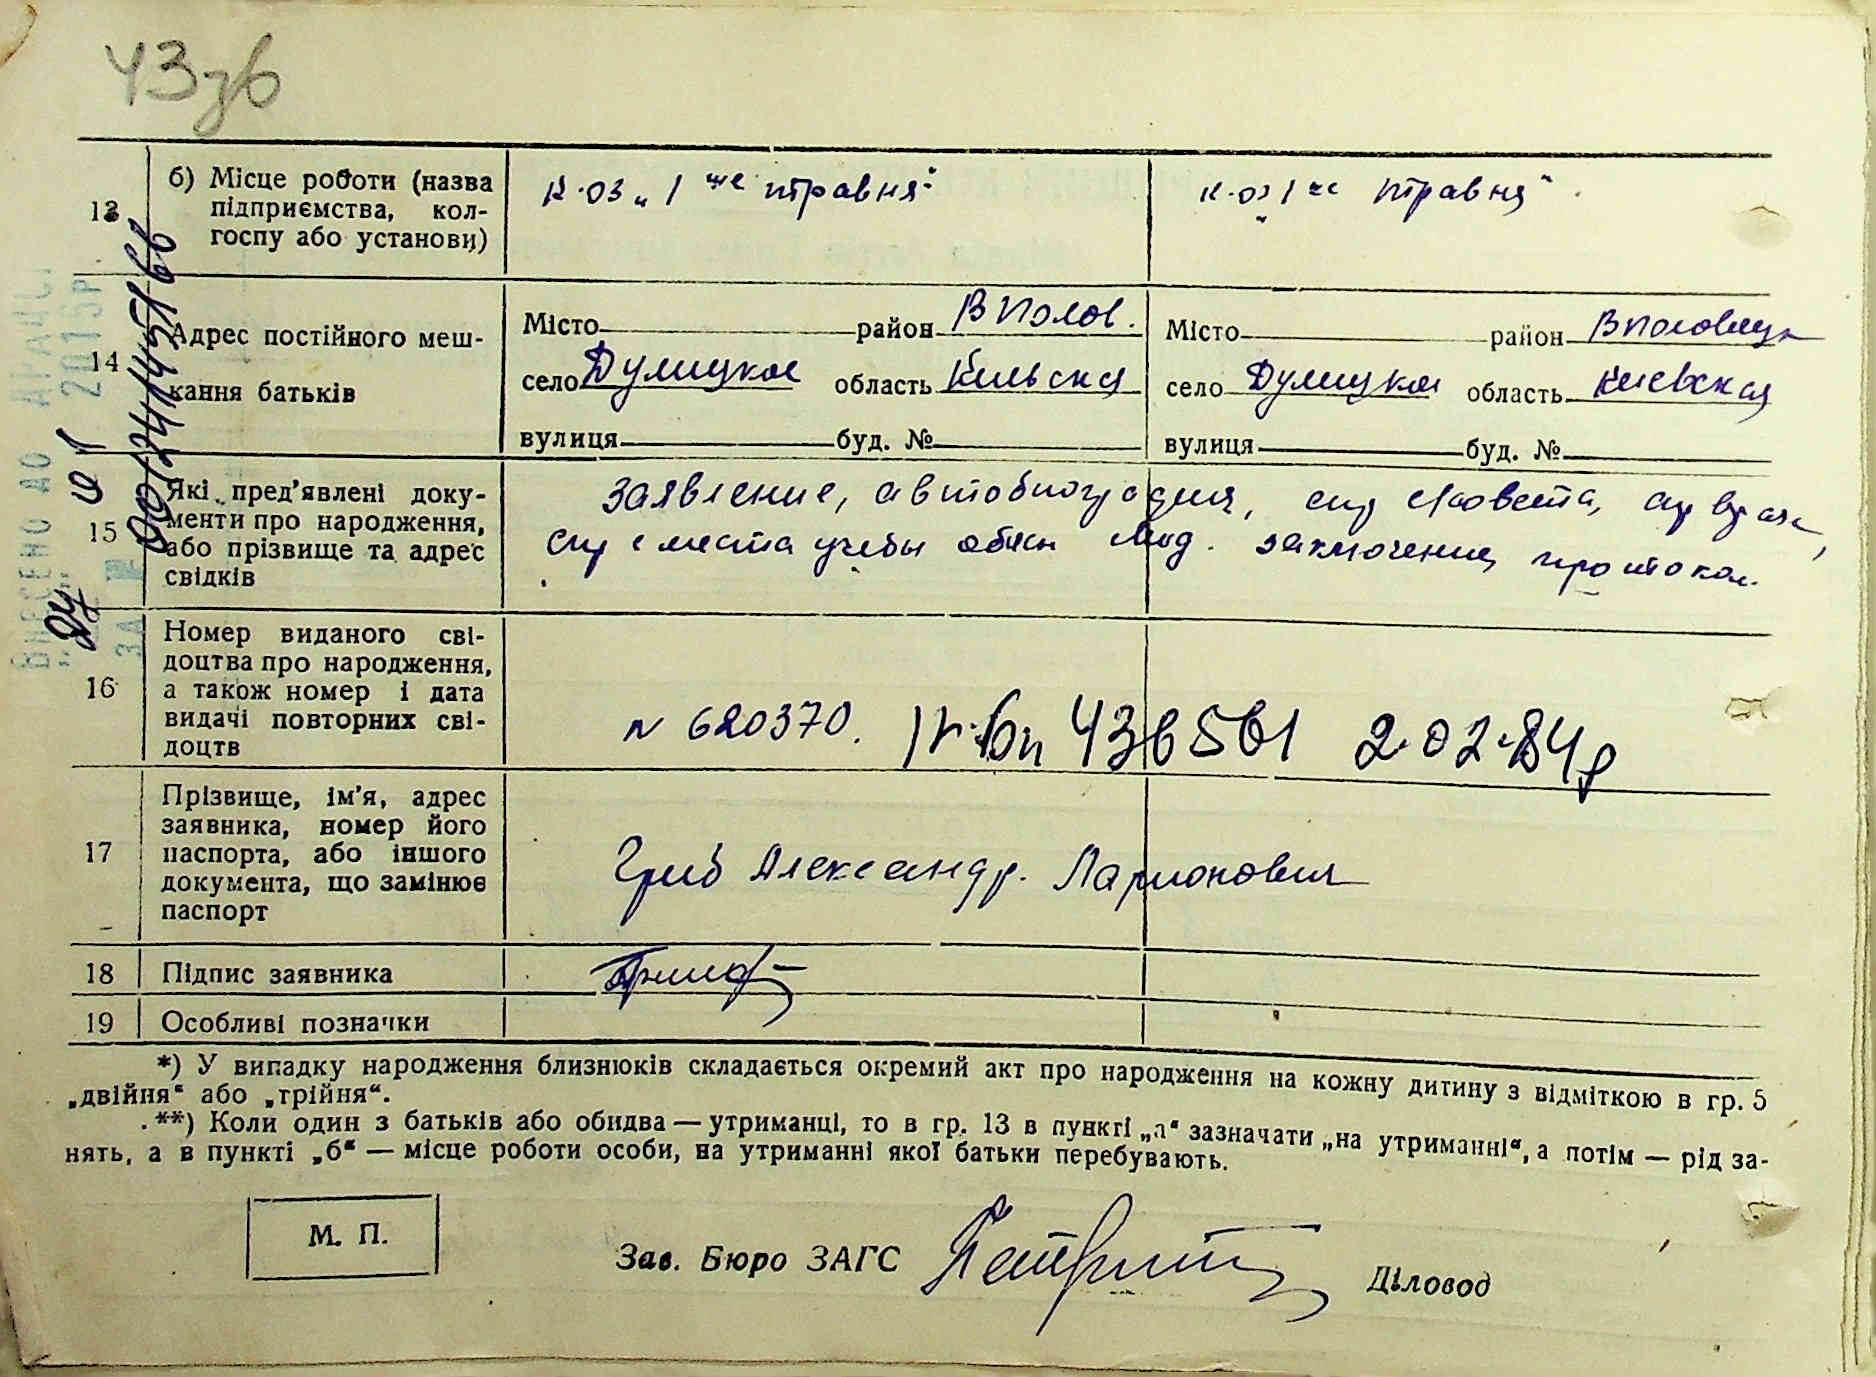 43зв
13 б) Місце роботи (назва підприємства, кол-
госпу або установи)
к-оз „1 ше травня“
к-оз „1 ше травня“
14 Адрес постійного меш-
кання батьків
Місто район В Полов.
село Дулицкое область Киевская
вулиця буд. №
Місто район В Половецк
село Дулицкое область Киевская
вулиця буд. №
15 Які пред'явлені доку-
менти про народження,
або прізвище та адрес
свідків
заявление, автобиография, спр с/совета, спр врача,
спр с места учебы объясн заключение, протокол.
16 Номер виданого сві-
доцтва про народження,
а також номер і дата
видачі повторних сві-
доцтв
N 620370. 436561 2.02.84р
17 Прізвище, ім'я, адрес
заявника, номер його
паспорта, або іншого
документа, що замінює
паспорт
Гриб Александр. Ларионович
18 Підпис заявника
19 Особливі позначки
*) У випадку народження близнюків складається окремий акт про народження на кожну дитину з відміткою в гр. 5
„двійня“ або „трійня“.
**) Коли один з батьків або обидва — утриманці, то в гр. 13 в пункті „а“ зазначати „на утриманні“, а потім — рід за-
нять, а в пункті „б“ — місце роботи особи, на утриманні якої батьки перебувають.
М. П.
Зав. Бюро ЗАГС
Діловод
ВНЕСЕНО ДО ДРАЦС
2015р.
ЗА №
00124114451166